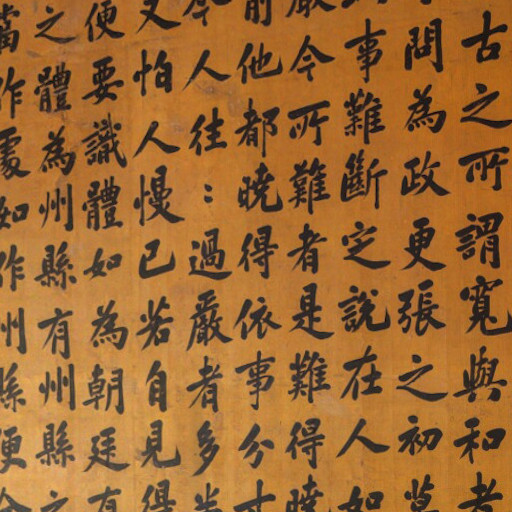 古之所謂寬與和者
問為政更張之初莫
事難斷定說在人如
嚴今所難者是難得曉
前他都曉得依事分寸
今人往往過嚴者多
又怕人慢已若自見得
便要識體如為朝廷有
之體為州縣有州縣之
當作處如作州縣便合